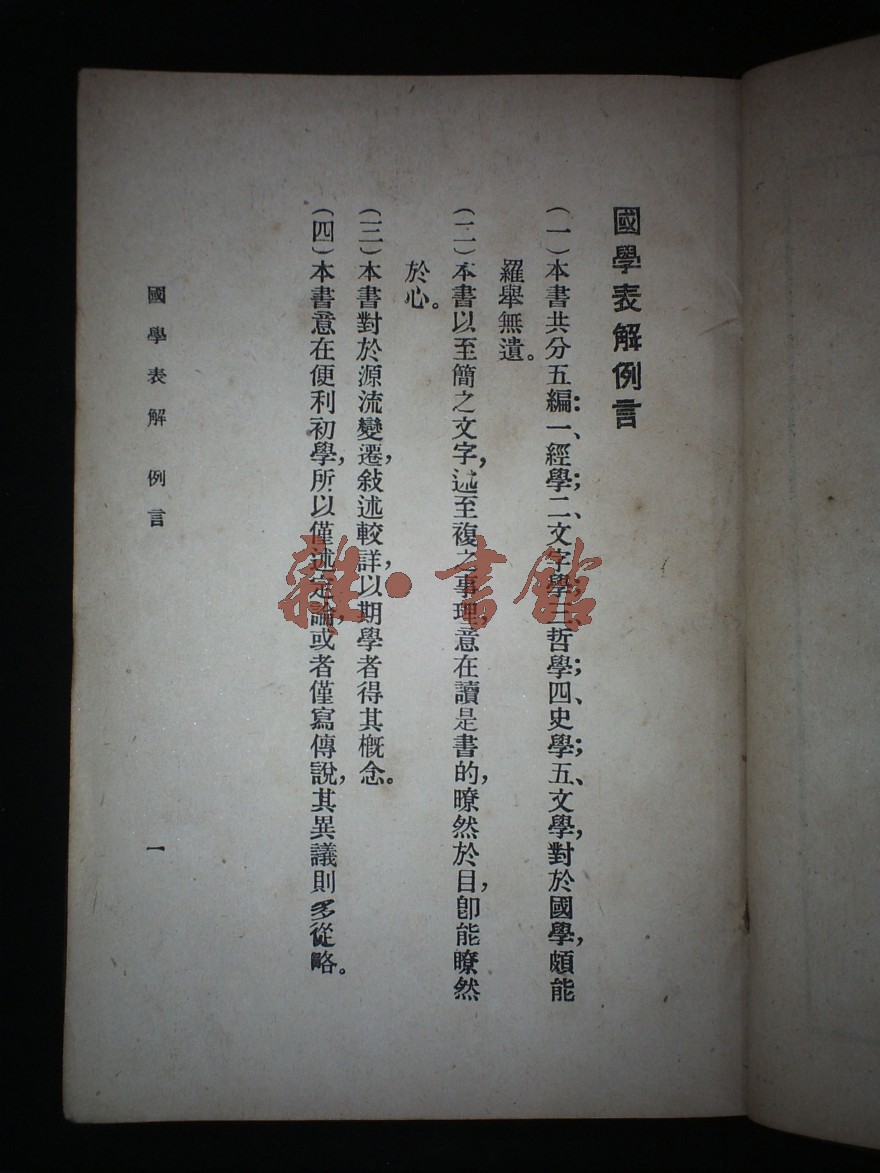 國學表解例言
(一)本書共分五編:一、經學;二、文字學;三、哲學;四、史學;五、文學,對於國學,頗能
羅舉無遺。
(二)本書以至簡之文字,述至複之事理,意在讀是書的,瞭然於目,卽能瞭然
於心。
(三)本書對於源流變遷,敍述較詳,以期學者得其概念。
(四)本書意在便利初學,所以僅述定論,或者僅寫傳說,其異議則多從略。
國學表解 例言 一
雜·書館